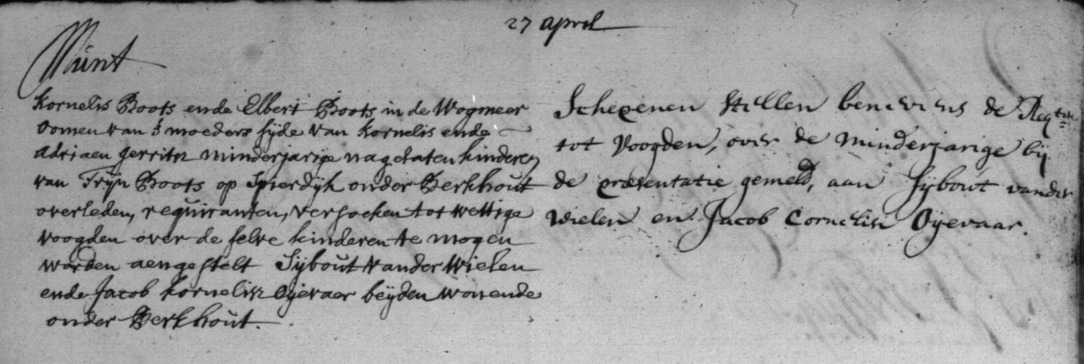 27 april
Munt
Kornelis Boots ende Elbert Boots in de Wogmeer
Oomen van s moeders sijde van Kornelis ende
Adriaen gerritsz minderjarige nagelaten kinderen
van Trijn Boots op Spierdijk onder Berkhout
overleden, requiranten, versoeken tot wettige
voogden over de selve kinderen te mogen
worden aengestelt Sijbout vander Wielen
ende Jacob Kornelisz Oijevaer beijden wonende
onder Berkhout.
Schepenen stellen benevens de Reqtn
tot Voogden, over de minderjarige bij
de præsentatie gemeld, aan Sijbout vander
Wielen en Jacob Cornelisz Oijevaar.